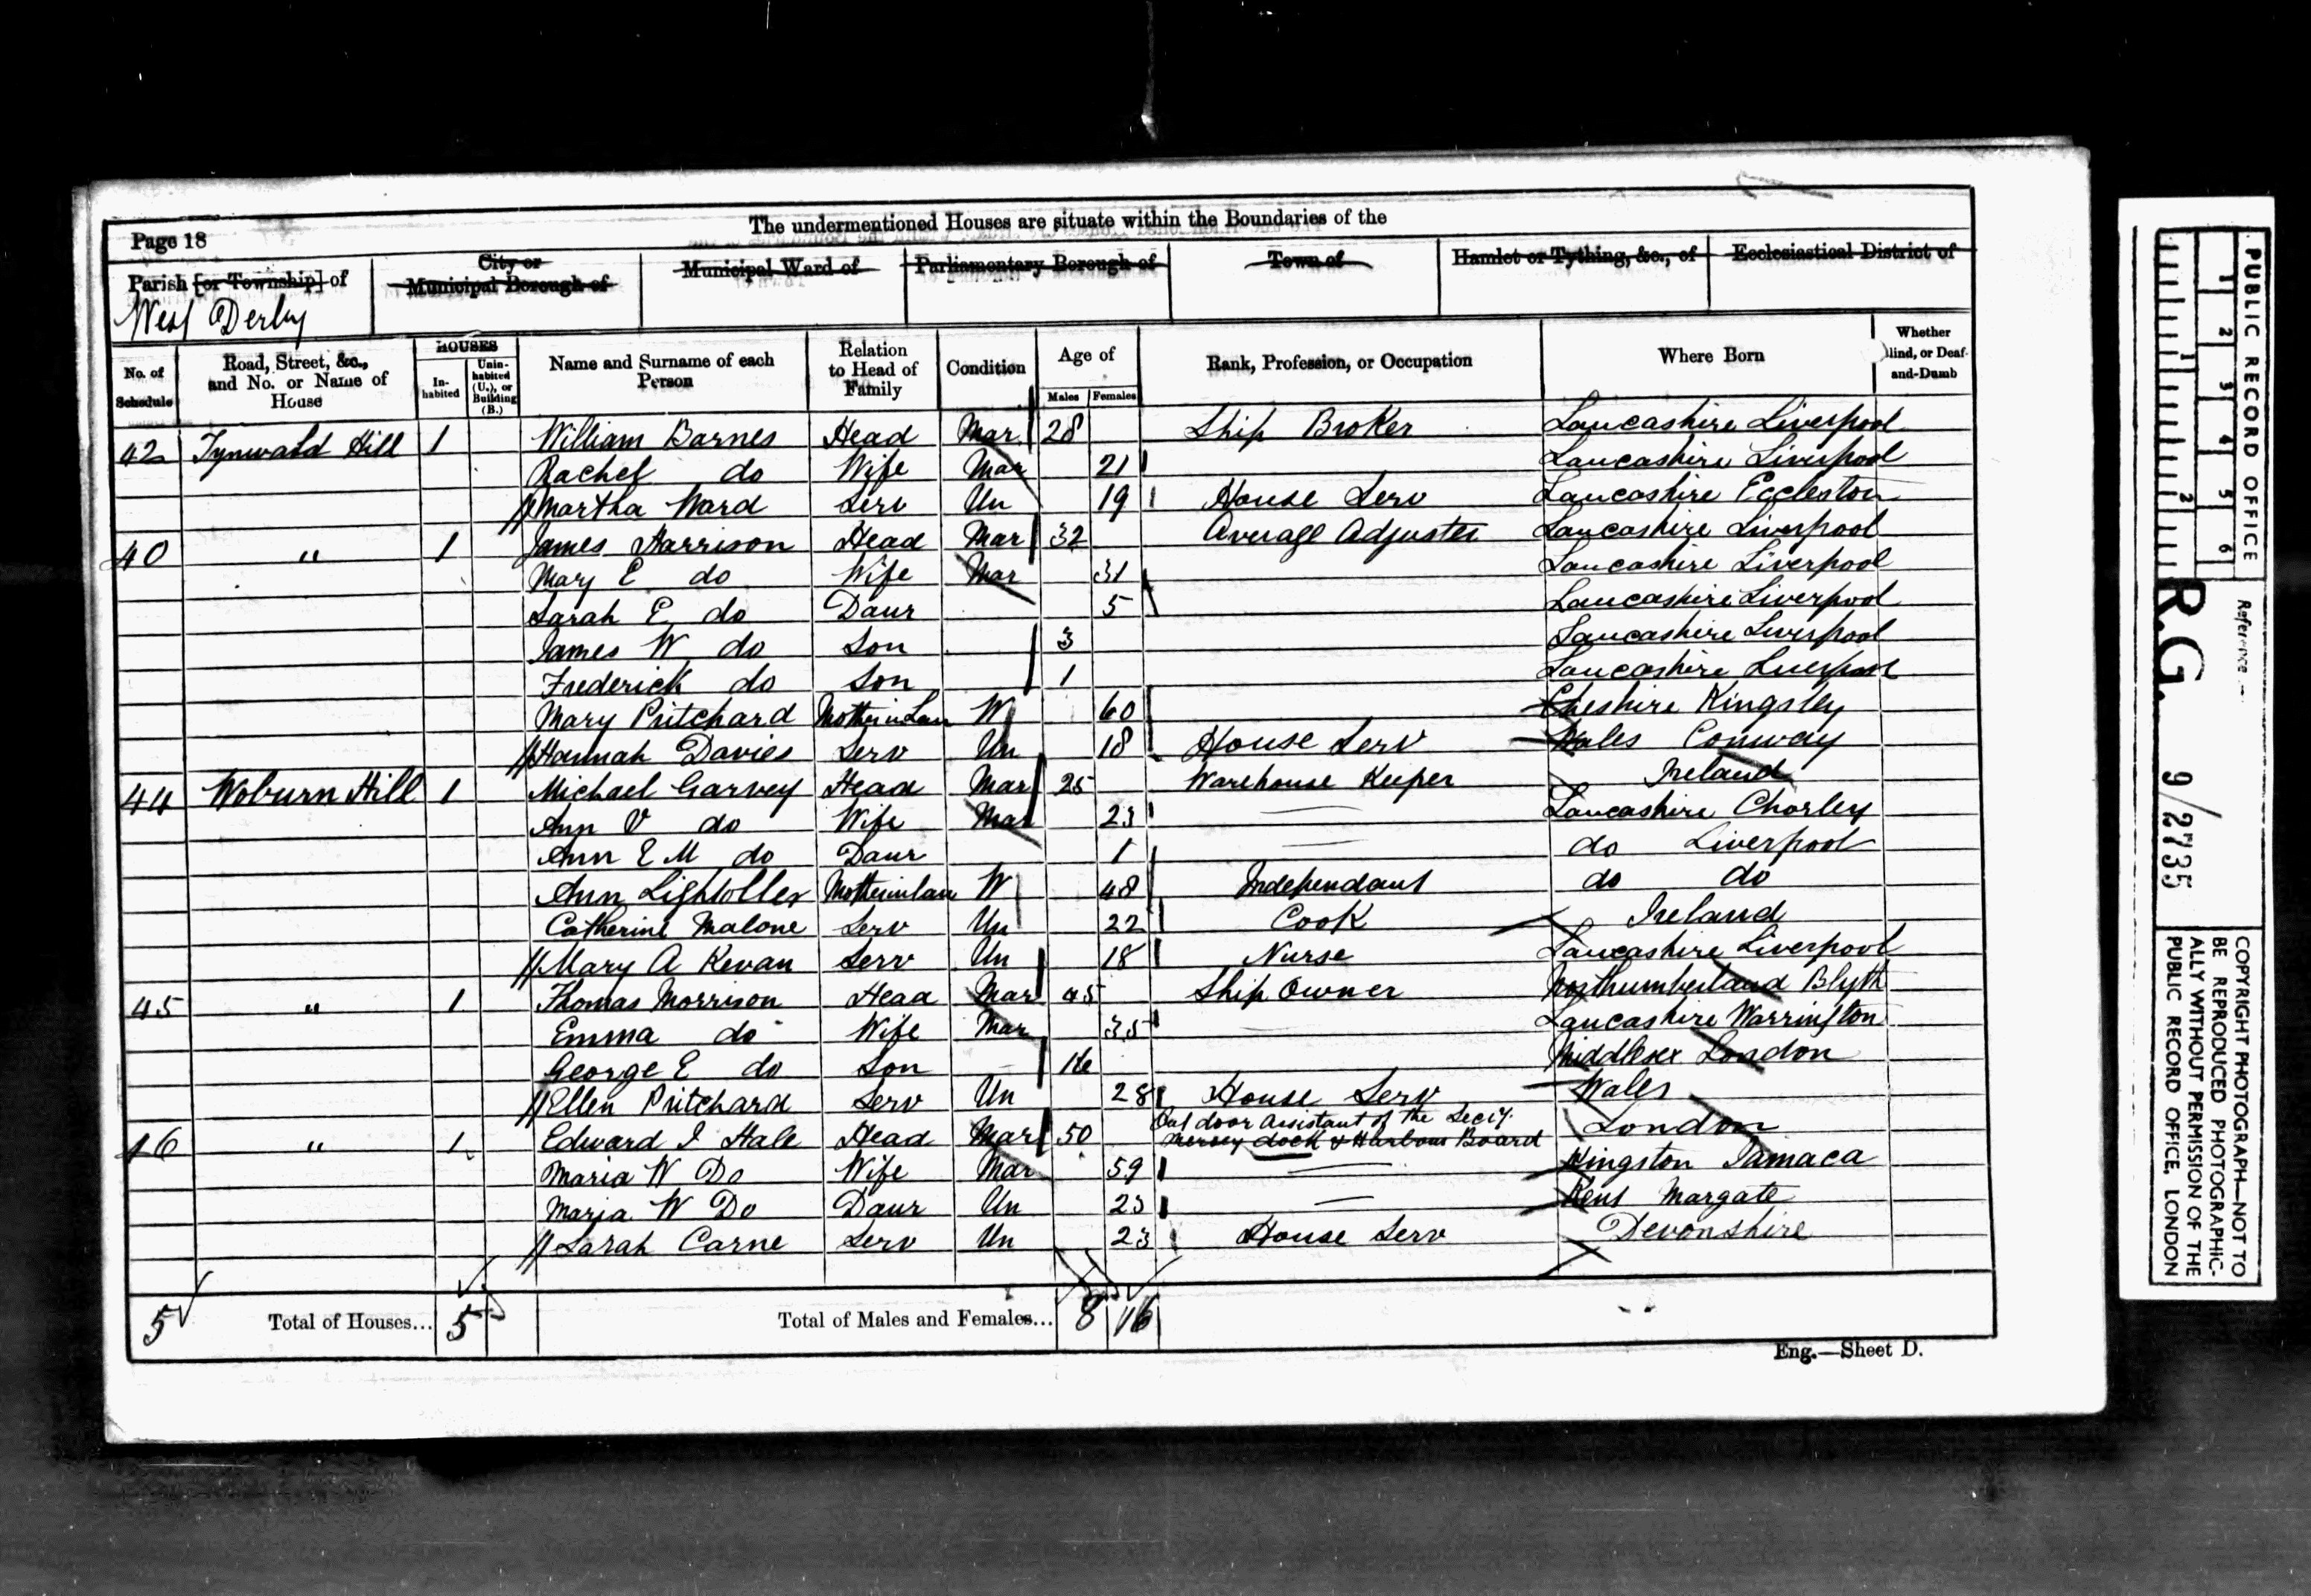 The undermentioned Houses are situate within the Boundaries of the
Page 18
Parish [or Township] of
City or
Municipal Borough of
Municipal Ward of
Parliamentary Borough of
Town of
Hamlet or Tything, &c., of
Ecclesiastical District of
West Derby
No. of Schedule
Road, Street, &c., and No. or Name of House
HOUSES
In-habited
Unin-habited (U.), or Building (B.)
Name and Surname of each Person
Relation to Head of Family
Condition
Age of
Males
Females
Rank, Profession, or Occupation
Where Born
Whether lind, or Deaf-and-Dumb
42 Tynwald Hill 1 William Barnes Head Mar 28 Ship Broker Lancashire Liverpool
Rachel do Wife Mar 21 Lancashire Liverpool
Martha Ward Serv Un 19 House Serv Lancashire Eccleston
40 " 1 James Harrison Head Mar 32 Average Adjuster Lancashire Liverpool
Mary E do Wife Mar 31 Lancashire Liverpool
Sarah E do Daur 5 Lancashire Liverpool
James W do Son 3 Lancashire Liverpool
Frederick do Son 1 Lancashire Liverpool
Mary Pritchard Mother in Law W 60 Cheshire Kingsley
Hannah Davies Serv Un 18 House Serv Wales Conway
44 Woburn Hill 1 Michael Garvey Head Mar 25 Warehouse Keeper Ireland
Ann V do Wife Mar 23 — Lancashire Chorley
Ann E M do Daur 1 — do Liverpool
Ann Lightoller Mother in law W 48 Independant do do
Catherine Malone Serv Un 22 Cook Ireland
Mary A Kevan Serv Un 18 Nurse Lancashire Liverpool
45 " 1 Thomas Morrison Head Mar 45 Ship Owner Northumberland Blyth
Emma do Wife Mar 35 Lancashire Warrington
George E do Son 16 Middlesex London
Ellen Pritchard Serv Un 28 House Serv Wales
46 " 1 Edward I Hale Head Mar 50 Out door Assistant of the Secy. Mersey dock & Harbour Board London
Maria W Do Wife Mar 59 — Kingston Jamaca
Maria W Do Daur Un 23 — Kent Margate
Sarah Carne Serv Un 23 House Serv Devonshire
5 Total of Houses... 5 Total of Males and Females... 8 16
Eng.—Sheet D.
PUBLIC RECORD OFFICE
1 2 3 4 5 6
1 2
Reference:-
R.G. 9/2735
COPYRIGHT PHOTOGRAPH—NOT TO
BE REPRODUCED PHOTOGRAPHIC-
ALLY WITHOUT PERMISSION OF THE
PUBLIC RECORD OFFICE, LONDON